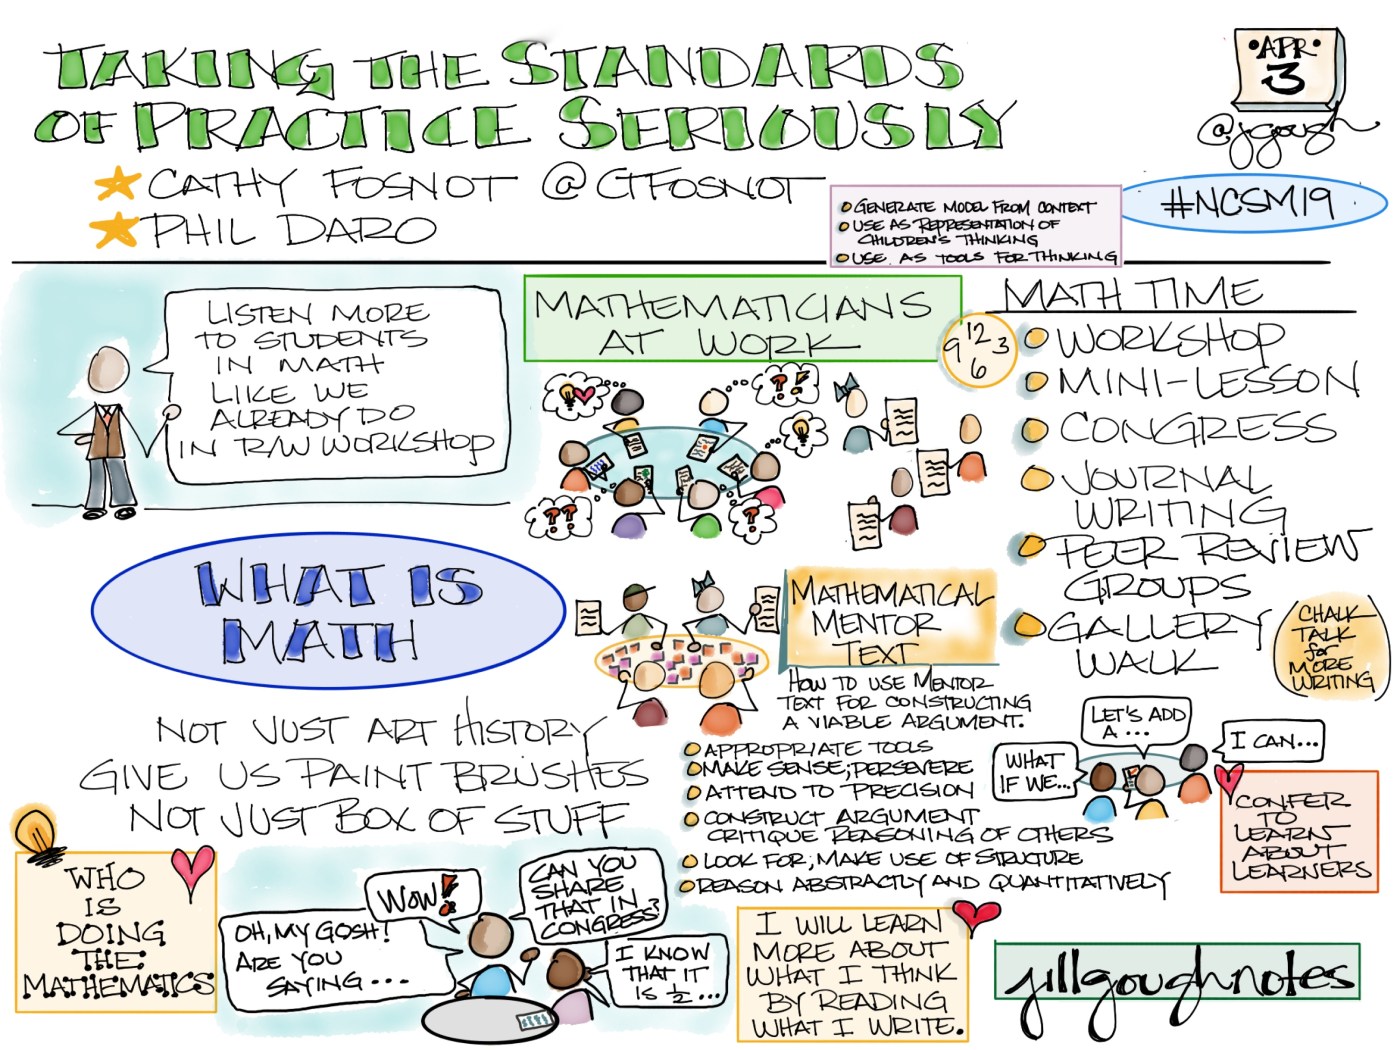 TAKING THE STANDARDS
OF PRACTICE SERIOUSLY
CATHY FOSNOT @CTFOSNOT
PHIL DARO
•APR•
3
@jgough
#NCSM19
GENERATE MODEL FROM CONTEXT
USE AS REPRESENTATION OF
CHILDREN'S THINKING
USE AS TOOLS FOR THINKING
LISTEN MORE
TO STUDENTS
IN MATH
LIKE WE
ALREADY DO
IN R/W WORKSHOP
MATHEMATICIANS
AT WORK
? !
??
?
12
9 3
6
MATH TIME
WORKSHOP
MINI-LESSON
CONGRESS
JOURNAL
WRITING
PEER REVIEW
GROUPS
GALLERY
WALK
CHALK
TALK
for
MORE
WRITING
WHAT IS
MATH
NOT JUST ART HISTORY
GIVE US PAINT BRUSHES
NOT JUST BOX OF STUFF
MATHEMATICAL
MENTOR
TEXT
HOW TO USE MENTOR
TEXT FOR CONSTRUCTING
A VIABLE ARGUMENT.
APPROPRIATE TOOLS
MAKE SENSE; PERSEVERE
ATTEND TO PRECISION
CONSTRUCT ARGUMENT
CRITIQUE REASONING OF OTHERS
LOOK FOR; MAKE USE OF STRUCTURE
REASON ABSTRACTLY AND QUANTITATIVELY
LET'S ADD
A ...
WHAT
IF WE...
I CAN...
CONFER
TO
LEARN
ABOUT
LEARNERS
WHO
IS
DOING
THE
MATHEMATICS
WOW!
OH, MY GOSH!
ARE YOU
SAYING ...
CAN YOU
SHARE
THAT IN
CONGRESS?
I KNOW
THAT IT
IS ½ ...
I WILL LEARN
MORE ABOUT
WHAT I THINK
BY READING
WHAT I WRITE.
jillgoughnotes